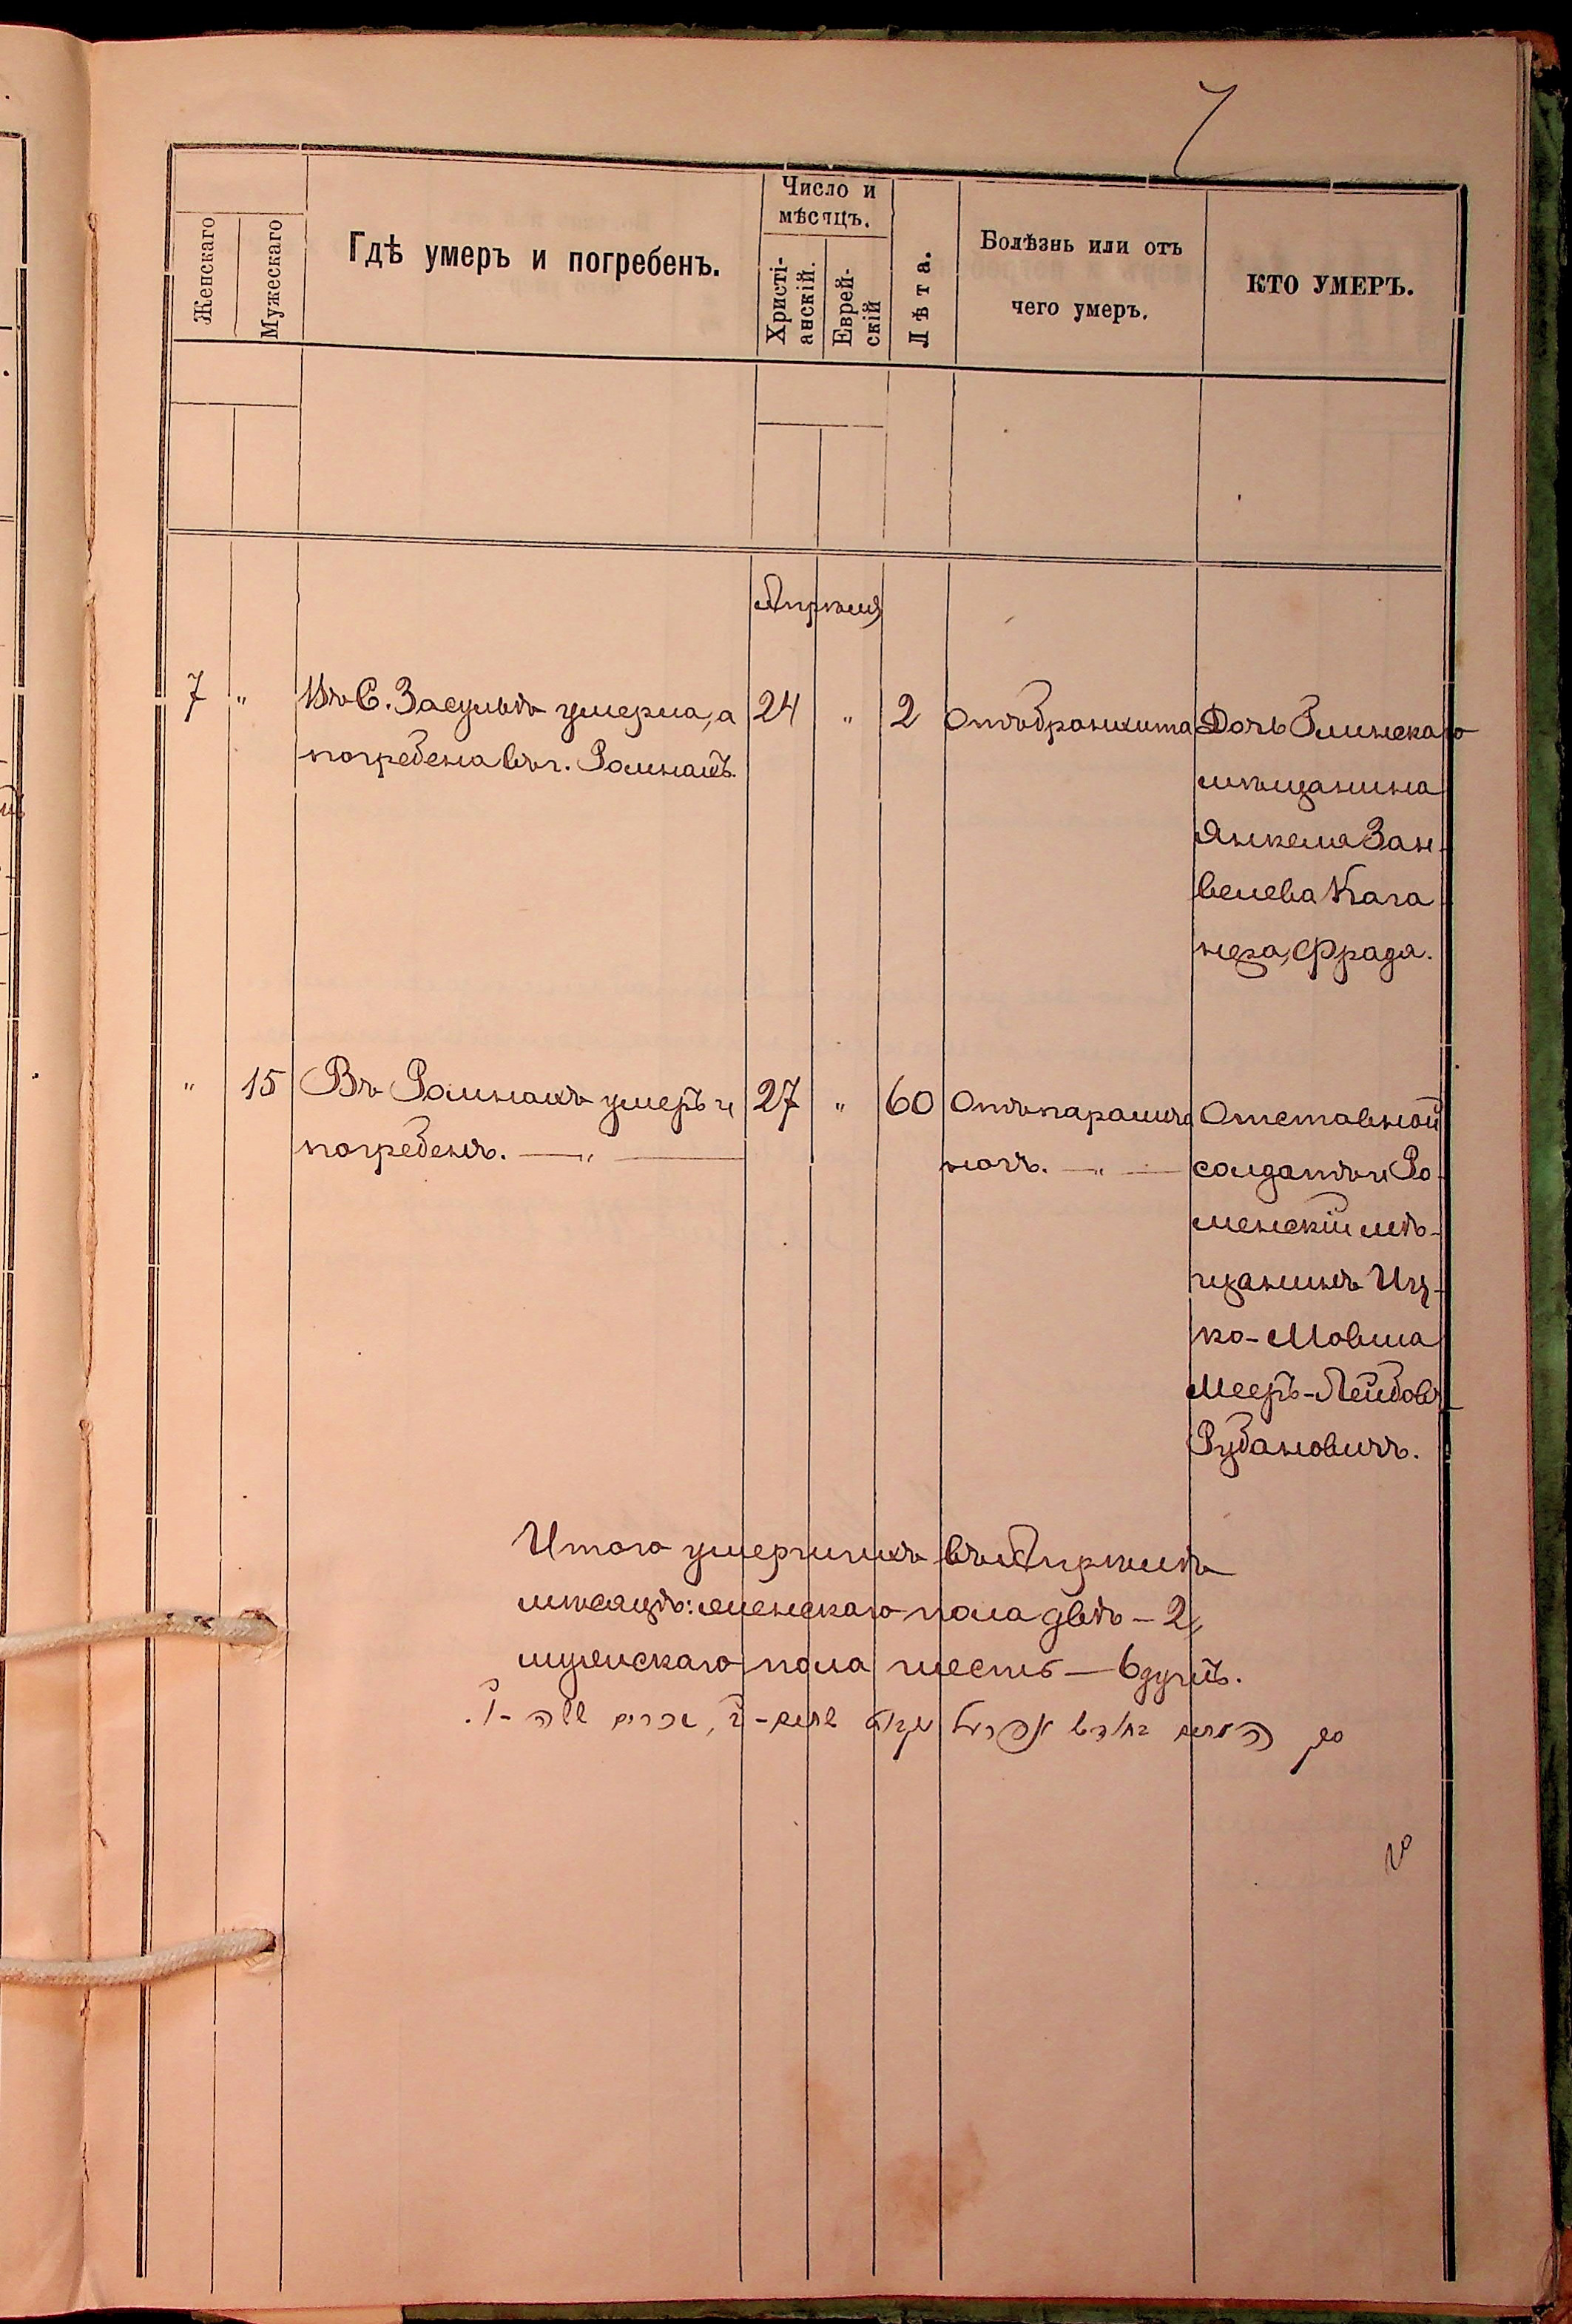 7
Женскаго
Мужескаго
Гдѣ умеръ и погребенъ.
Число и мѣсяцъ.
Христі-
анскій.
Еврей-
скій
Лѣта.
Болѣзнь или отъ
чего умеръ.
КТО УМЕРЪ.
Апрѣля
7 " Въ С. Засульѣ умерла, а 24 " 2 Отъ бронхита Дочь Глинскаго
погребена въ г. Ромнахъ.
мѣщанина
Янкеля Зан-
велева Кага
неза, Фрада.
" 15 Въ Ромнахъ умеръ и 27 " 60 Отъ паралича Отставной
погребенъ. — " —
ногъ. — " — солдатъ и Ро-
менскій мѣ-
щанинъ Иц-
ко-Мовша
Мееръ-Лейбовъ
Рубановичъ.
Итого умершихъ въ Апрѣлѣ
мѣсяцѣ: женскаго пола двѣ – 2,
мужскаго пола шесть – 6 душъ.